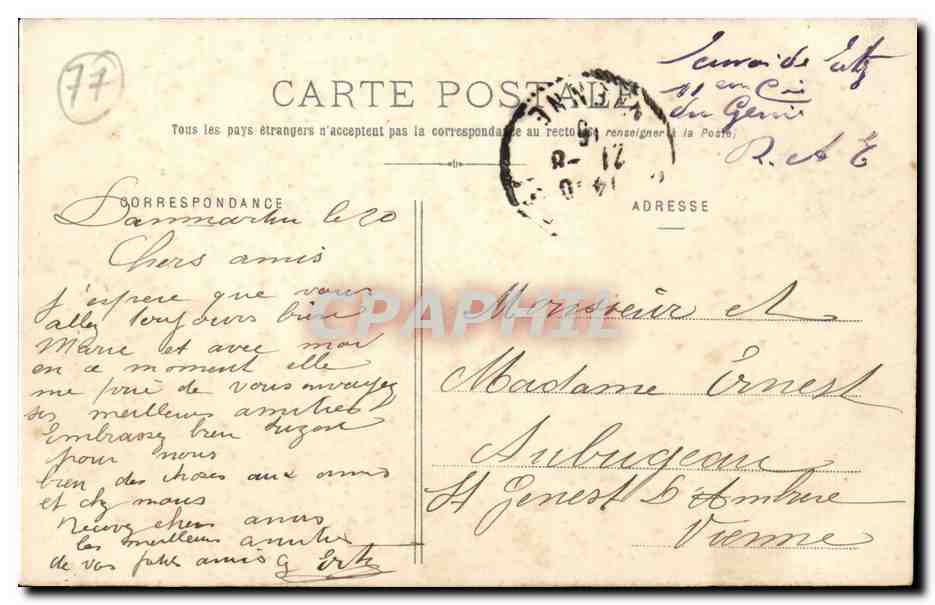 77
CARTE POSTALE
Tous les pays étrangers n'acceptent pas la correspondance au recto (se renseigner à la Poste)
Envoi de Ertz
11 em Cie
du Génie
R. A E
VIENNE
14-0
21 -8
15
CORRESPONDANCE
Danmartin le 20
Chers amis
J'espere que vous
allez toujours bien
Marie et avec moi
en ce moment elle
me prie de vous envoyez
ses meilleurs amities
Embrassez bien Suzon
pour nous
bien des choses aux amis
et chez nous
Recevez chers amis
les meilleurs amities
de vos fidels amis G Ertz
ADRESSE
Monsieur et
Madame Ernest
Aubugeau
St Genest D'Ambere
Vienne
CPAPHIL